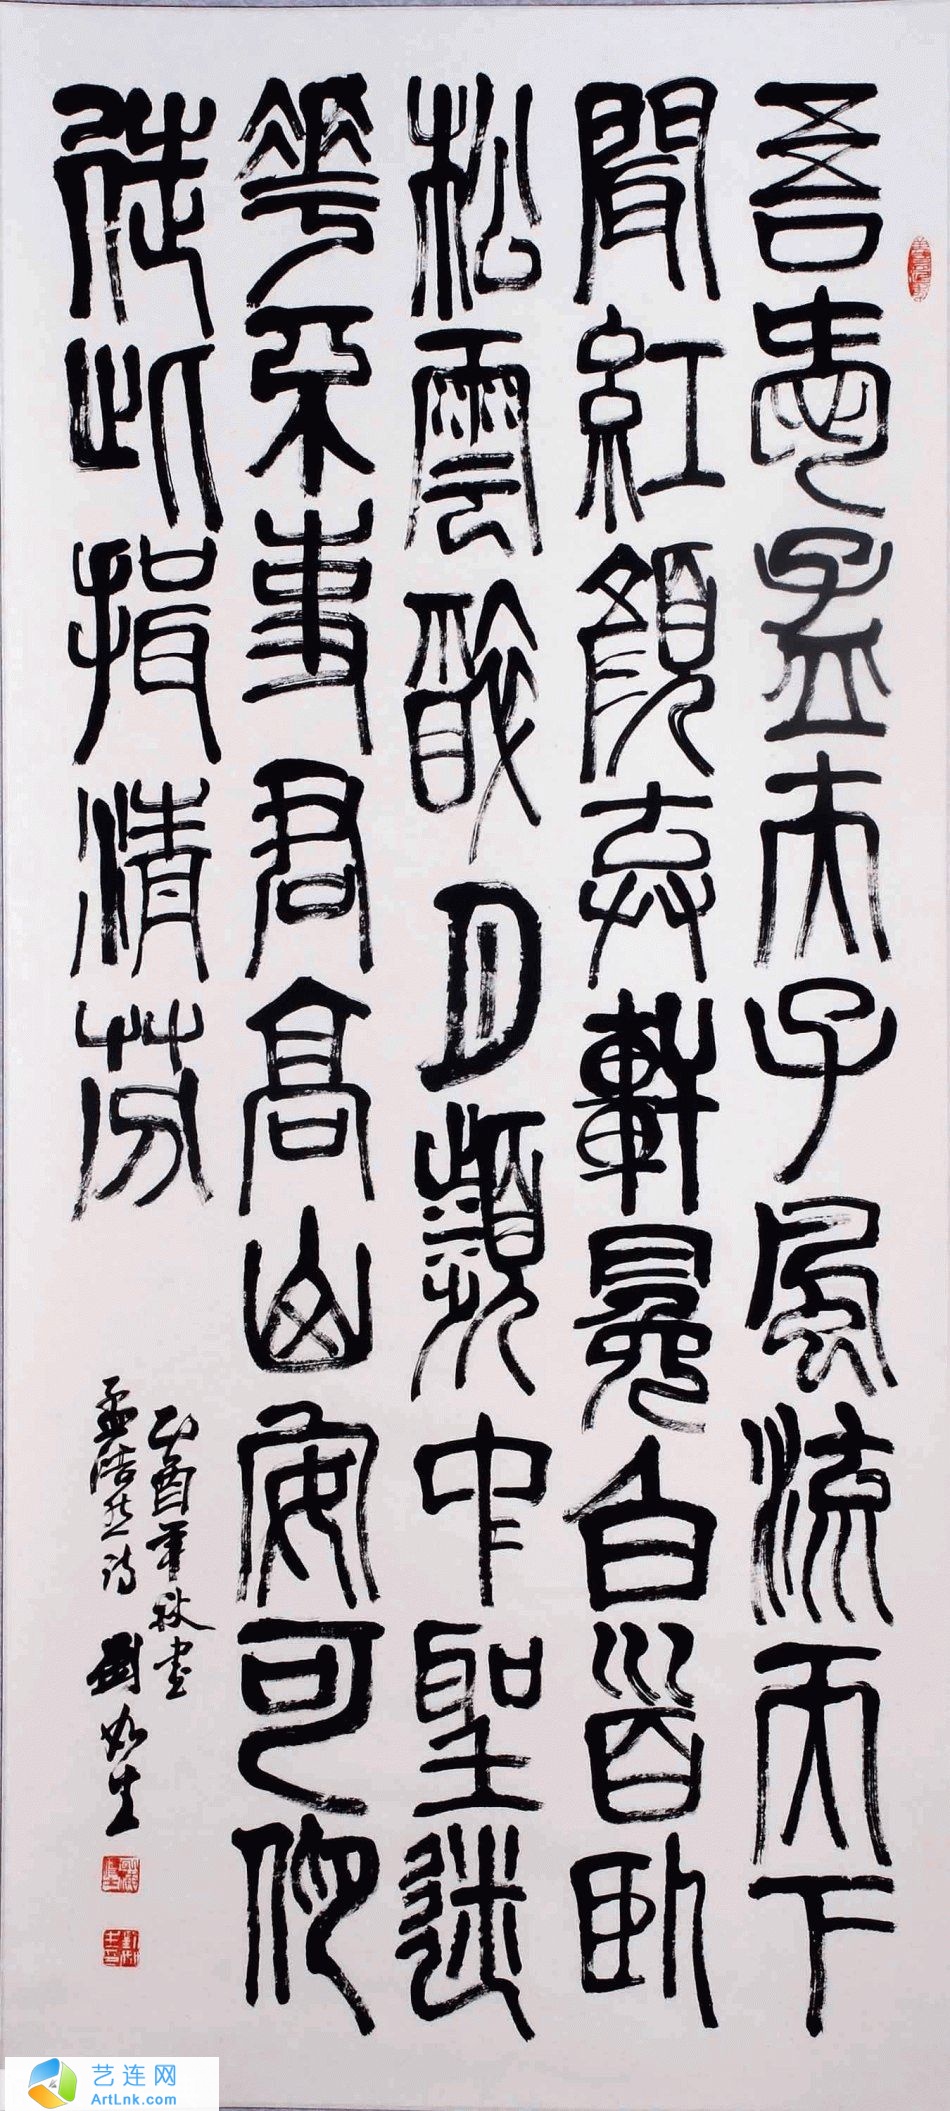 吾愛孟夫子風流天下
聞紅顏弃軒冕白首卧
松雲醉月頻中聖迷
華不事君高山安可仰
徒此揖清芬
乙酉年秋書
孟浩然詩 劉如生
艺连网
ArtLnk.com